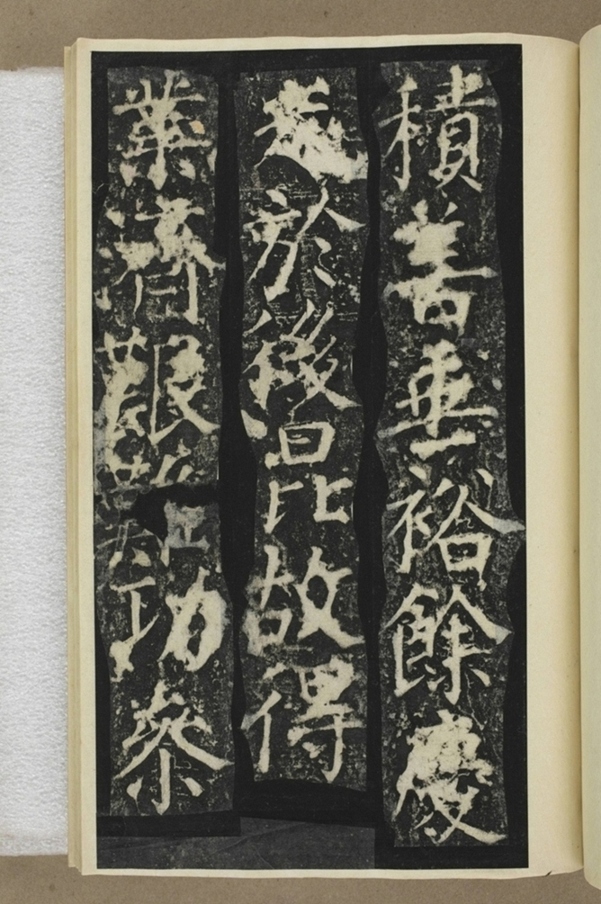 積善垂裕餘慶
於後昆故得
業濟艱難功參